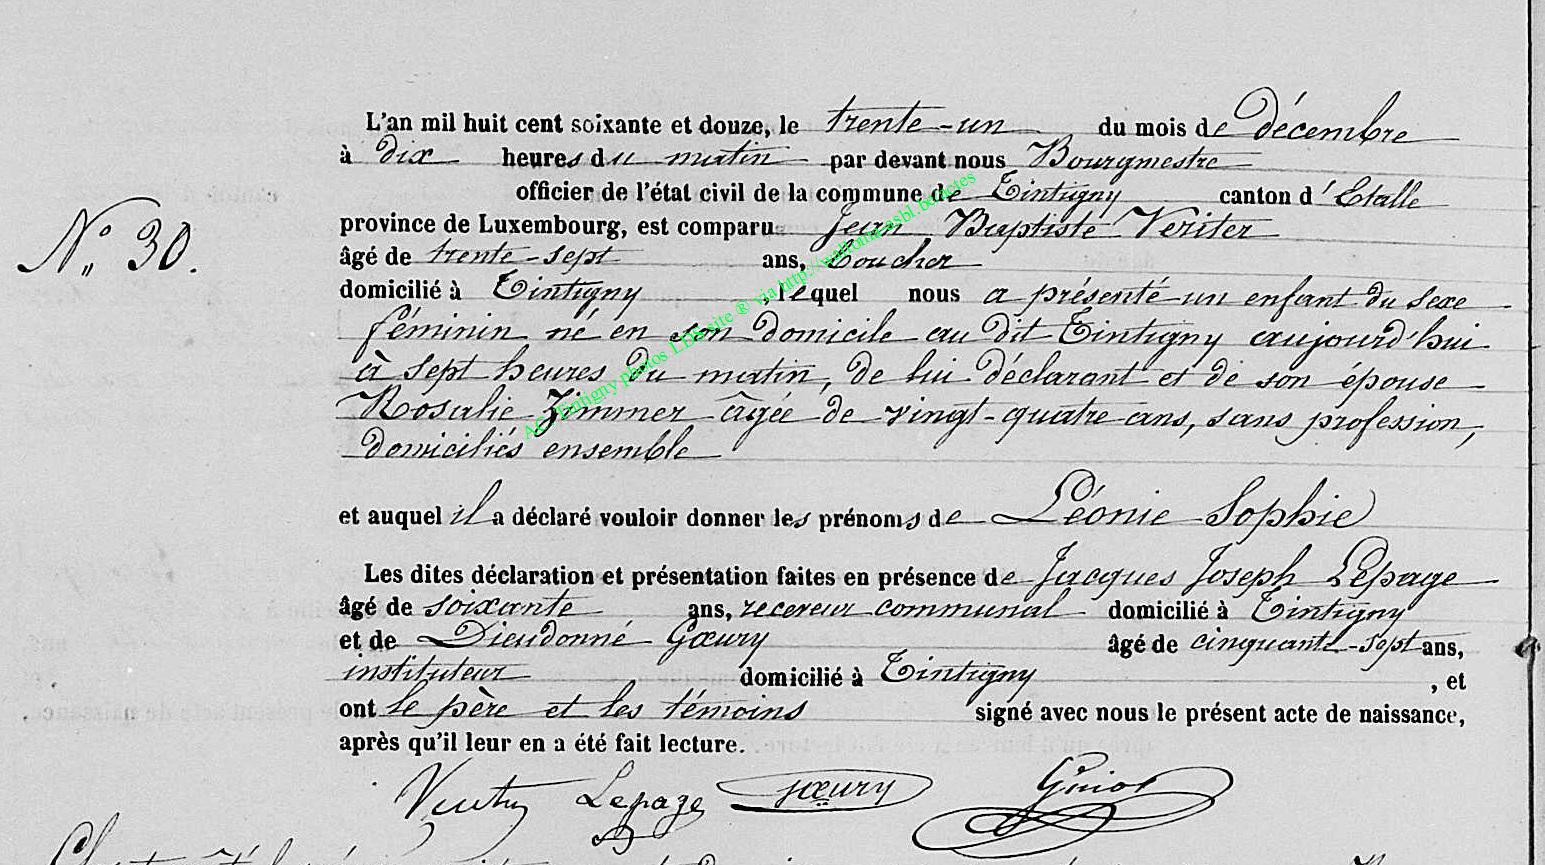 L'an mil huit cent soixante et douze, le trente-un du mois de décembre
à dix heures du matin par devant nous Bourgmestre
officier de l'état civil de la commune de Tintigny canton d'Etalle
N° 30.
province de Luxembourg, est comparu Jean Baptiste Veriter
âgé de trente-sept ans,
domicilié à Tintigny, lequel nous a présenté un enfant du sexe
féminin né en son domicile au dit Tintigny aujourd'hui
à sept heures du matin, de lui déclarant et de son épouse
Rosalie Zimmer âgée de vingt-quatre ans, sans profession,
domiciliés ensemble
et auquel il a déclaré vouloir donner les prénoms de Léonie Sophie
Les dites déclaration et présentation faites en présence de Jacques Joseph Lepage
âgé de soixante ans, receveur communal domicilié à Tintigny
et de Dieudonné Gœury âgé de cinquante-sept ans,
instituteur domicilié à Tintigny, et
ont le père et les témoins signé avec nous le présent acte de naissance,
après qu'il leur en a été fait lecture.
Lepage Gœury